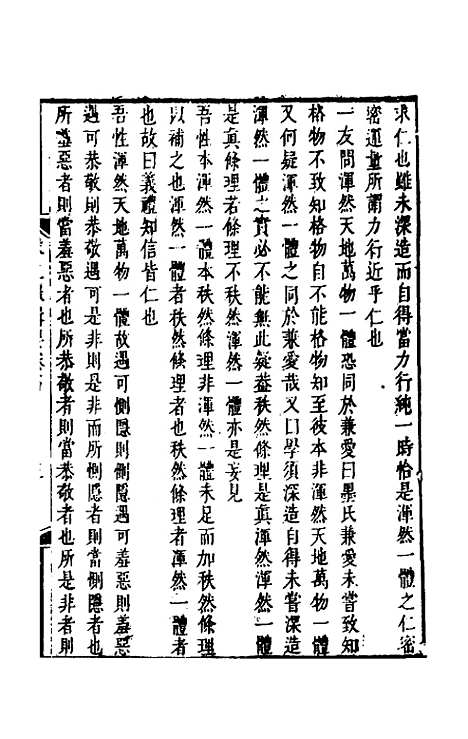 求仁也雖未深造而自得當力行純一時恰是渾然一體之仁密
密運量所謂力行近乎仁也
一友問渾然天地萬物一體恐同於兼愛曰墨氏兼愛未嘗致知
格物不致知格物自不能格物知至彼本非渾然天地萬物一體
又何疑渾然一體之同於兼愛哉又曰學須深造自得未嘗深造
渾然一體之實必不能無此疑蓋秩然條理是真渾然渾然一體
是真條理若條理不秩然渾然一體亦是妄見
吾性本渾然一體本秩然條理非渾然一體未足而加秩然條理
以補之也渾然一體者秩然條理者也秩然條理者渾然一體者
也故曰義禮知信皆仁也
吾性渾然天地萬物一體故遇可惻隱則惻隱遇可羞惡則羞惡
遇可恭敬則恭敬遇可是非則是非而所惻隱者則當惻隱者也
所羞惡者則當羞惡者也所恭敬者則當恭敬者也所是非者則